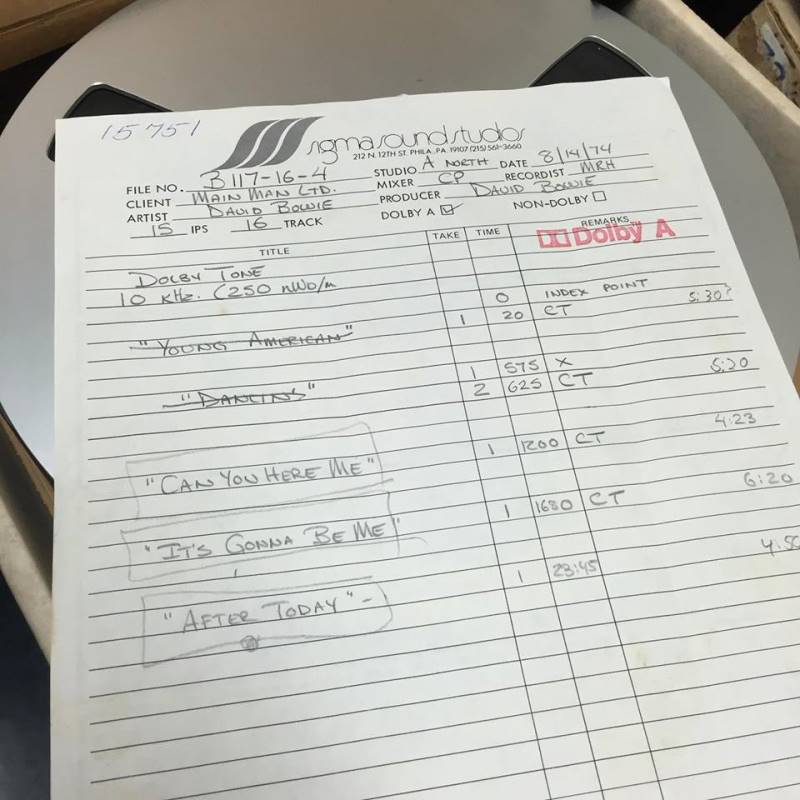 15751
sigma sound studios
212 N. 12TH ST. PHILA., PA 19107 (215) 561-3660
FILE NO. B117-16-4 STUDIO A NORTH DATE 8/14/74
CLIENT MAIN MAN LTD. MIXER CP RECORDIST MRH
ARTIST DAVID BOWIE PRODUCER DAVID BOWIE
15 IPS 16 TRACK DOLBY A NON-DOLBY
TITLE TAKE TIME REMARKS
Dolby A
DOLBY TONE
10 KHZ. (250 nWb/m
0 INDEX POINT
"YOUNG AMERICAN" 1 20 CT 5:30?
1 575 X
"DANCING" 2 625 CT 5:20
"CAN YOU HERE ME" 1 1200 CT 4:23
"IT'S GONNA BE ME" 1 1680 CT 6:20
"AFTER TODAY" - 1 23:45